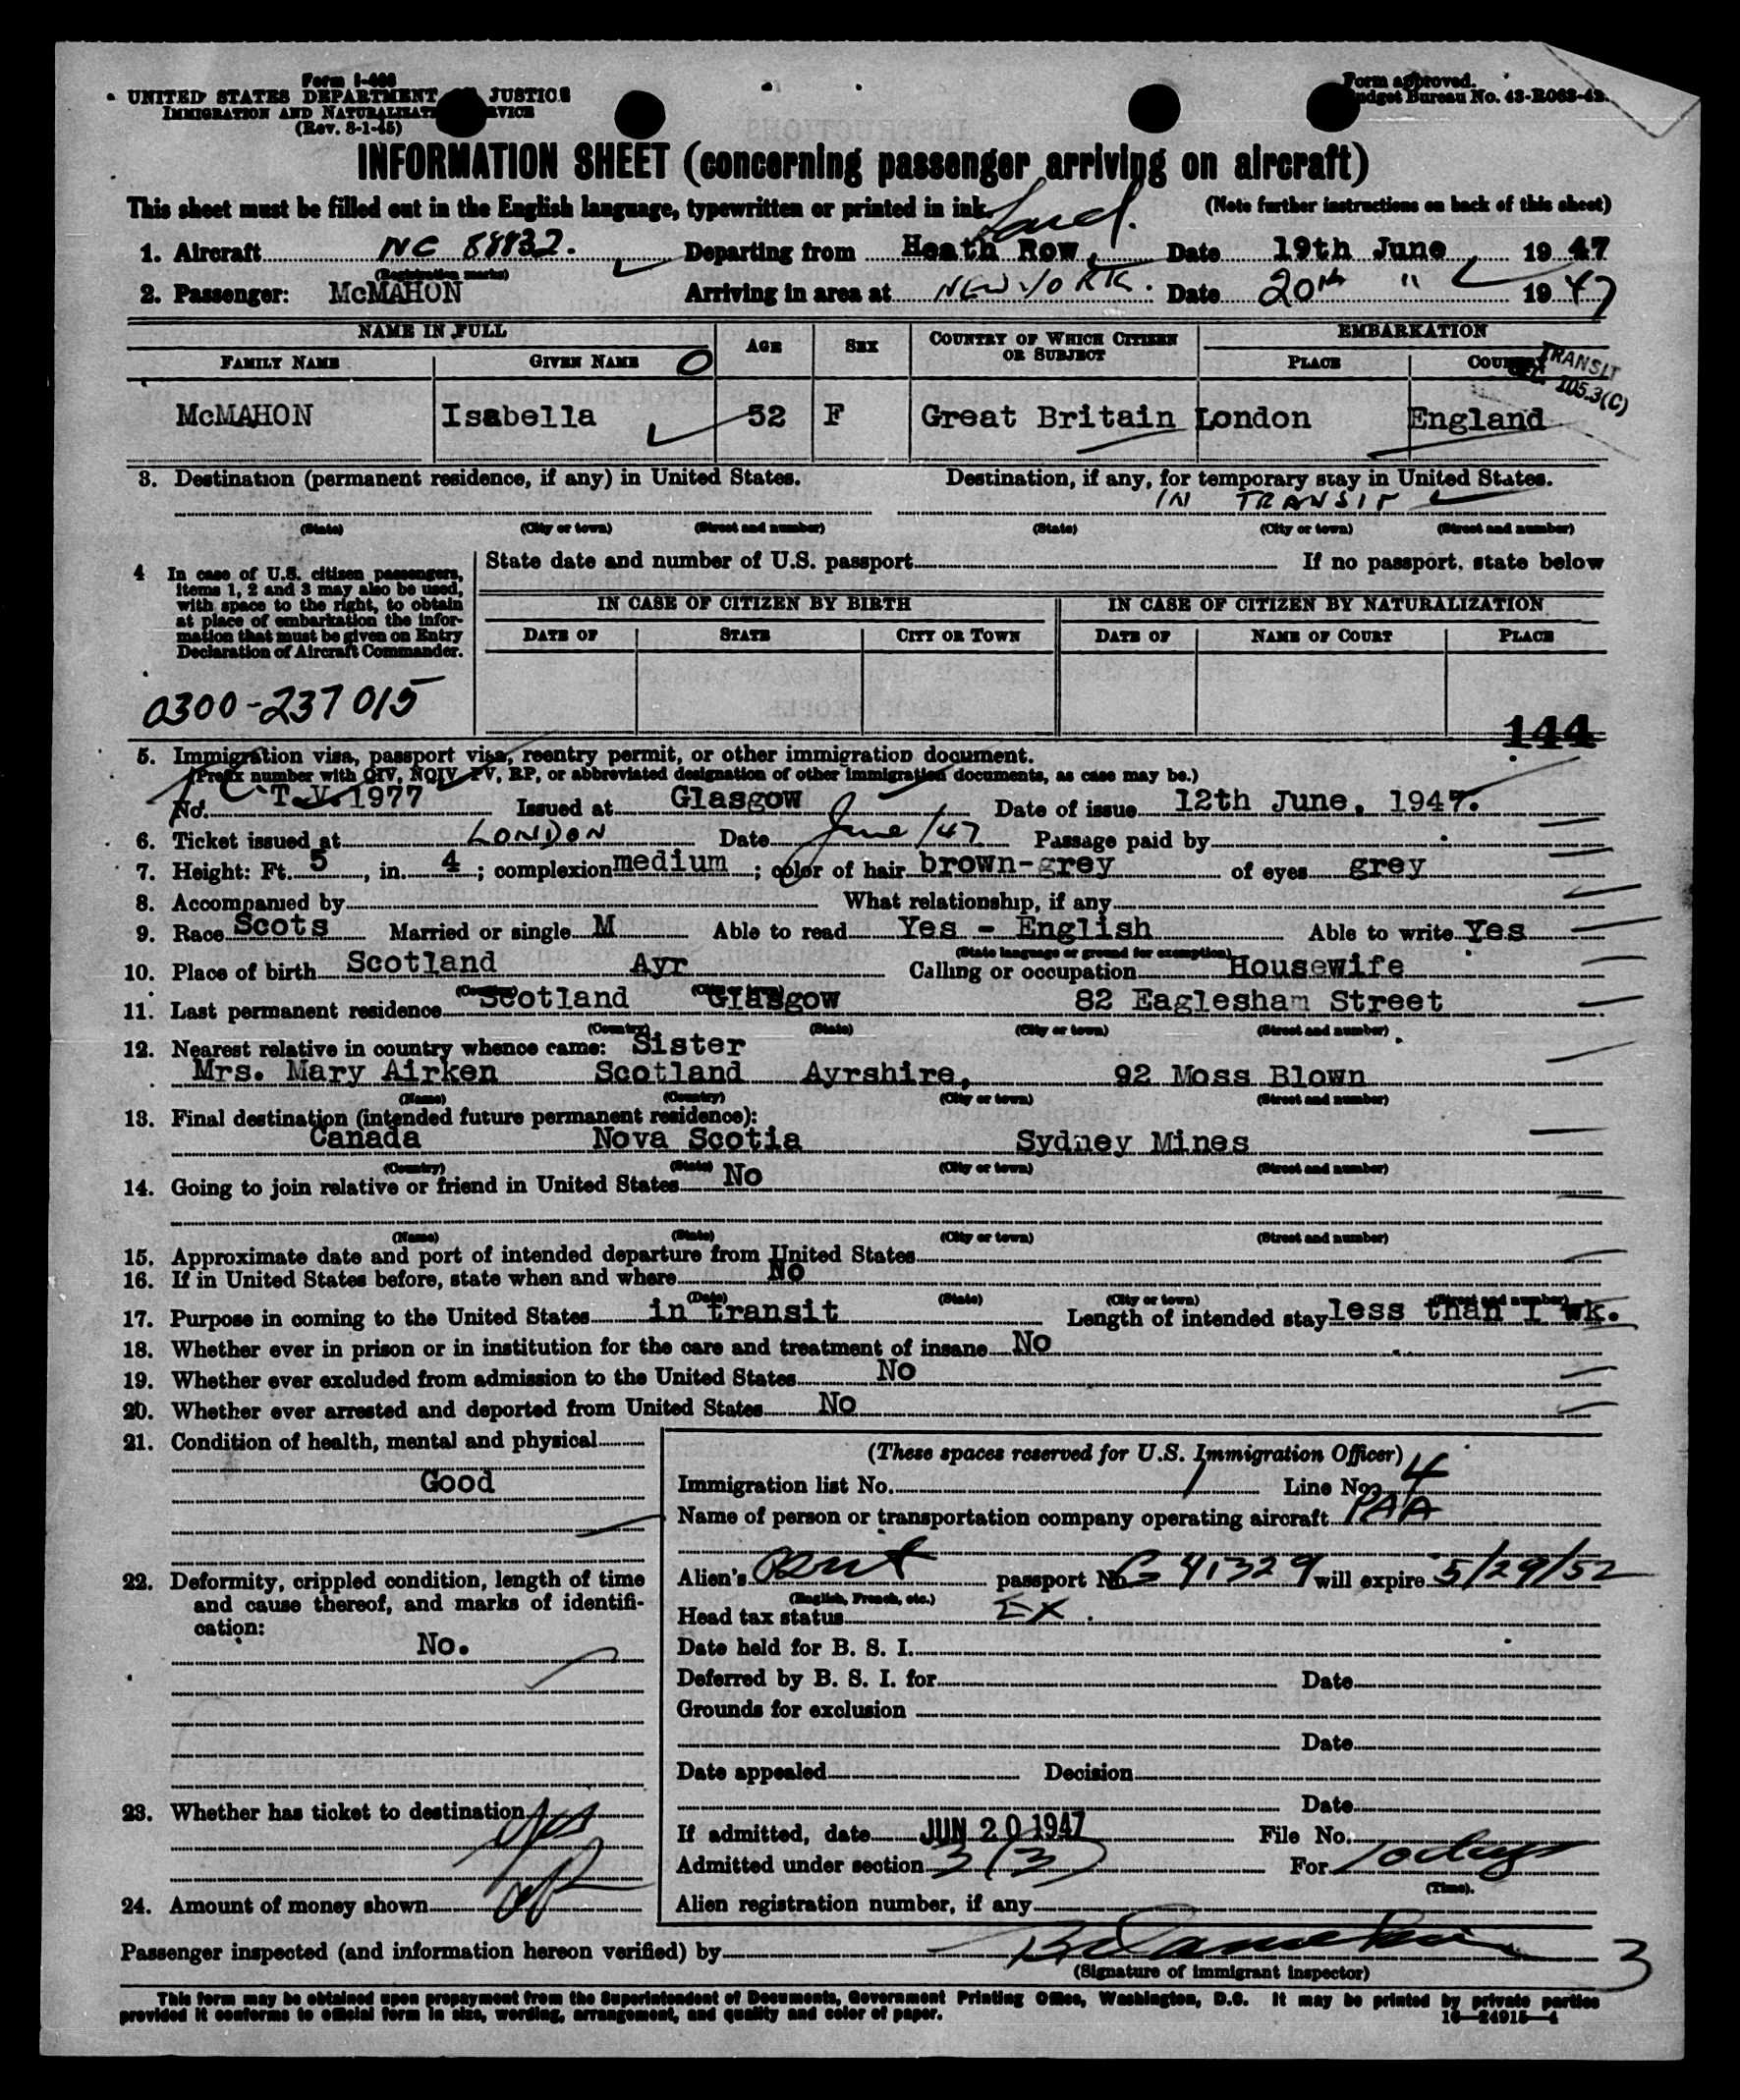 Form I-466
UNITED STATES DEPARTMENT JUSTICE
IMMIGRATION AND NATURALIZATI RVICE
(Rev. 8-1-45)
Form approved.
udget Bureau No. 43-R063-42.
INFORMATION SHEET (concerning passenger arriving on aircraft)
This sheet must be filled out in the English language, typewritten or printed in ink. (Note further instructions on back of this sheet)
1. Aircraft NC 88832. Departing from Heath Row, Lond. Date 19th June 19 47
(Registration marks)
2. Passenger: McMAHON Arriving in area at NEW YORK. Date 20th " 19 47
NAME IN FULL AGE SEX COUNTRY OF WHICH CITIZEN OR SUBJECT EMBARKATION
FAMILY NAME GIVEN NAME PLACE COUN
TRANSIT
105.3(C)
McMAHON Isabella 52 F Great Britain London England
3. Destination (permanent residence, if any) in United States. Destination, if any, for temporary stay in United States.
IN TRANSIT
(State) (City or town) (Street and number) (State) (City or town) (Street and number)
4 In case of U.S. citizen passengers, items 1, 2 and 3 may also be used, with space to the right, to obtain at place of embarkation the information that must be given on Entry Declaration of Aircraft Commander.
State date and number of U.S. passport If no passport, state below
IN CASE OF CITIZEN BY BIRTH IN CASE OF CITIZEN BY NATURALIZATION
DATE OF STATE CITY OR TOWN DATE OF NAME OF COURT PLACE
0300-237015
144
5. Immigration visa, passport visa, reentry permit, or other immigration document.
(Prefix number with QIV, NQIV, PV, RP, or abbreviated designation of other immigration documents, as case may be.)
No. T.V. 1977 Issued at Glasgow Date of issue 12th June, 1947.
6. Ticket issued at LONDON Date June/47 Passage paid by
7. Height: Ft. 5, in. 4; complexion medium; color of hair brown-grey of eyes grey
8. Accompanied by What relationship, if any
9. Race Scots Married or single M Able to read Yes - English Able to write Yes
(State language or ground for exemption)
10. Place of birth Scotland Ayr Calling or occupation Housewife
(Country) (City or town)
11. Last permanent residence Scotland Glasgow 82 Eaglesham Street
(Country) (State) (City or town) (Street and number)
12. Nearest relative in country whence came: Sister
Mrs. Mary Airken Scotland Ayrshire, 92 Moss Blown
(Name) (Country) (City or town) (Street and number)
13. Final destination (intended future permanent residence):
Canada Nova Scotia Sydney Mines
(Country) (State) (City or town) (Street and number)
14. Going to join relative or friend in United States No
(Name) (State) (City or town) (Street and number)
15. Approximate date and port of intended departure from United States
16. If in United States before, state when and where No
(Date) (State) (City or town) (Street and number)
17. Purpose in coming to the United States in transit Length of intended stay less than 1 wk.
18. Whether ever in prison or in institution for the care and treatment of insane No
19. Whether ever excluded from admission to the United States No
20. Whether ever arrested and deported from United States No
21. Condition of health, mental and physical
Good
22. Deformity, crippled condition, length of time
and cause thereof, and marks of identifi-
cation:
No.
23. Whether has ticket to destination yes
24. Amount of money shown
(These spaces reserved for U.S. Immigration Officer)
Immigration list No. 1 Line No. 4
Name of person or transportation company operating aircraft PAA
Alien's Brit passport No. C 41329 will expire 5/29/52
(English, French, etc.)
Head tax status EX.
Date held for B. S. I.
Deferred by B. S. I. for Date
Grounds for exclusion
Date
Date appealed Decision
Date
If admitted, date JUN 20 1947 File No.
Admitted under section 3(3) For 10 days
(Time).
Alien registration number, if any
Passenger inspected (and information hereon verified) by
(Signature of immigrant inspector)
3
This form may be obtained upon prepayment from the Superintendent of Documents, Government Printing Office, Washington, D.C. It may be printed by private parties
provided it conforms to official form in size, wording, arrangement, and quality and color of paper.
16—24915-1